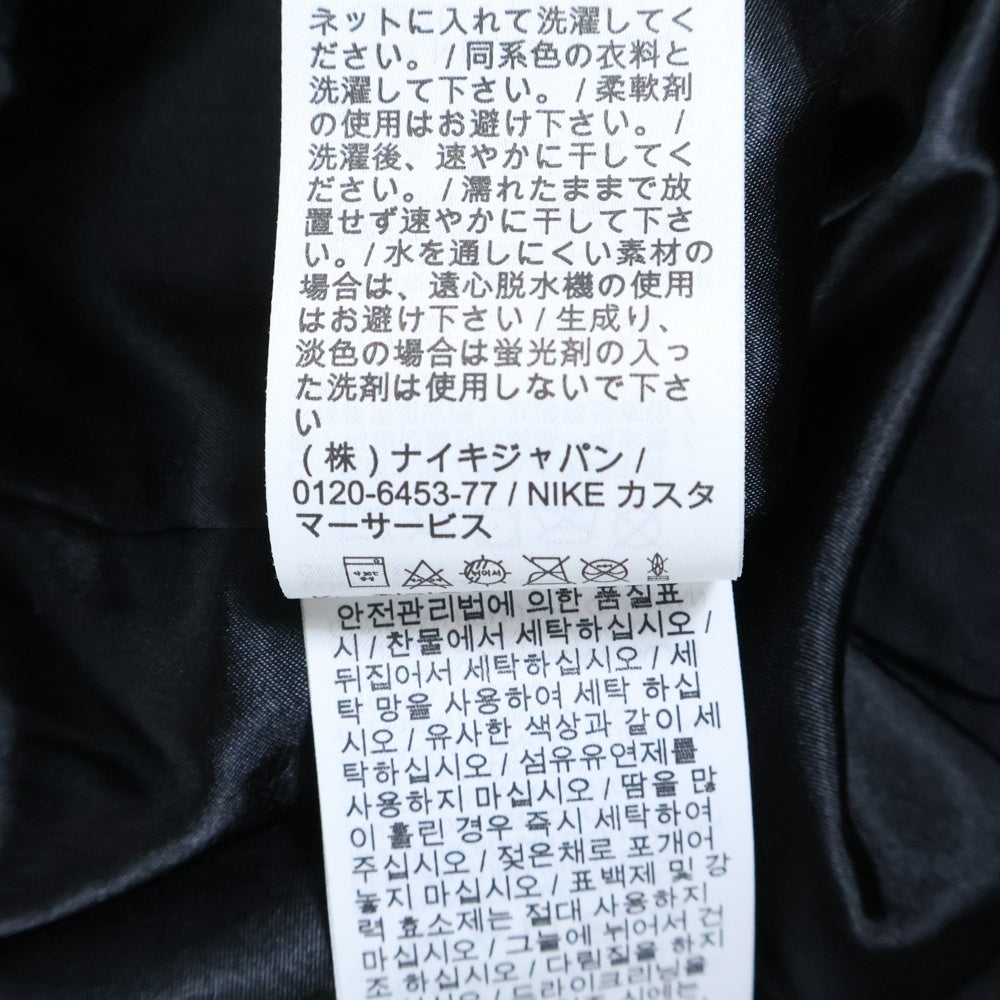 ネットに入れて洗濯してく
ださい。 / 同系色の衣料と
洗濯して下さい。 / 柔軟剤
の使用はお避け下さい。 /
洗濯後、速やかに干してく
ださい。 / 濡れたままで放
置せず速やかに干して下さ
い。/ 水を通しにくい素材の
場合は、遠心脱水機の使用
はお避け下さい / 生成り、
淡色の場合は蛍光剤の入っ
た洗剤は使用しないで下さ
い
( 株 ) ナイキジャパン /
0120-6453-77 / NIKE カスタ
マーサービス
안전관리법에 의한 품질표
시 / 찬물에서 세탁하십시오 /
뒤집어서 세탁하십시오 / 세
탁 망을 사용하여 세탁 하십
시오 / 유사한 색상과 같이 세
탁하십시오 / 섬유유연제를
사용하지 마십시오 / 땀을 많
이 흘린 경우 즉시 세탁하여
주십시오 / 젖은채로 포개어
놓지 마십시오 / 표백제 및 강
력 효소제는 절대 사용하지
마십시오 / 그늘에 뉘어서 건
조 하십시오 / 다림질을 하지
마십시오 / 드라이크리닝을